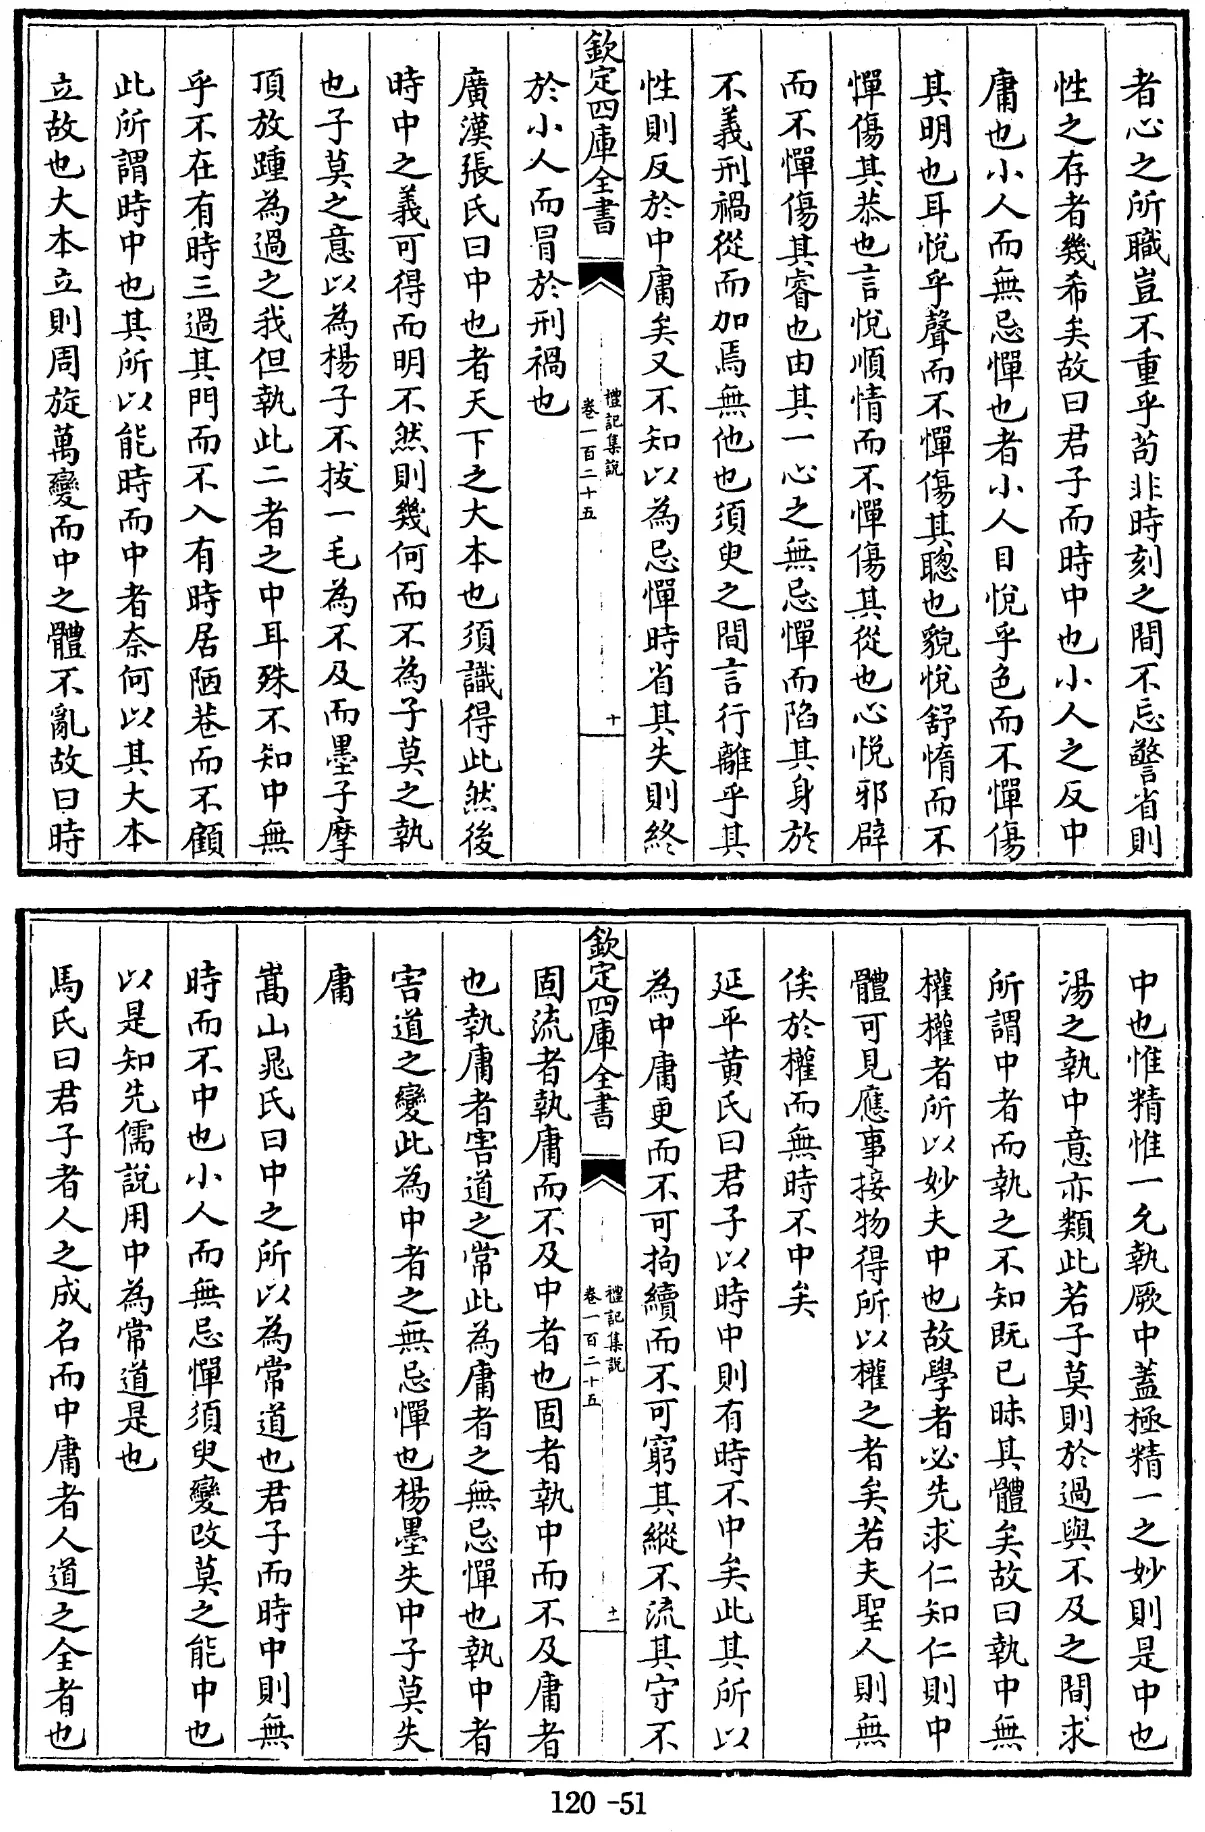 者心之所職豈不重乎苟非時刻之間不忘警省則
性之存者幾希矣故曰君子而時中也小人之反中
庸也小人而無忌憚也者小人目悅乎色而不憚傷
其明也耳悅乎聲而不憚傷其聰也貌悅舒惰而不
憚傷其恭也言悅順情而不憚傷其從也心悅邪辟
而不憚傷其睿也由其一心之無忌憚而陷其身於
不義刑禍從而加焉無他也須臾之間言行離乎其
性則反於中庸矣又不知以為忌憚時省其失則終
欽定四庫全書
禮記集說
卷一百二十五
十
於小人而冒於刑禍也
廣漢張氏曰中也者天下之大本也須識得此然後
時中之義可得而明不然則幾何而不為子莫之執
也子莫之意以為楊子不拔一毛為不及而墨子摩
頂放踵為過之我但執此二者之中耳殊不知中無
乎不在有時三過其門而不入有時居陋巷而不顧
此所謂時中也其所以能時而中者奈何以其大本
立故也大本立則周旋萬變而中之體不亂故曰時
中也惟精惟一允執厥中蓋極精一之妙則是中也
湯之執中意亦類此若子莫則於過與不及之間求
所謂中者而執之不知既已昧其體矣故曰執中無
權權者所以妙夫中也故學者必先求仁知仁則中
體可見應事接物得所以權之者矣若夫聖人則無
俟於權而無時不中矣
延平黄氏曰君子以時中則有時不中矣此其所以
為中庸更而不可拘續而不可窮其縱不流其守不
欽定四庫全書
禮記集說
卷一百二十五
十一
固流者執庸而不及中者也固者執中而不及庸者
也執庸者害道之常此為庸者之無忌憚也執中者
害道之變此為中者之無忌憚也楊墨失中子莫失
庸
嵩山晁氏曰中之所以為常道也君子而時中則無
時而不中也小人而無忌憚須臾變改莫之能中也
以是知先儒說用中為常道是也
馬氏曰君子者人之成名而中庸者人道之全者也
120-51